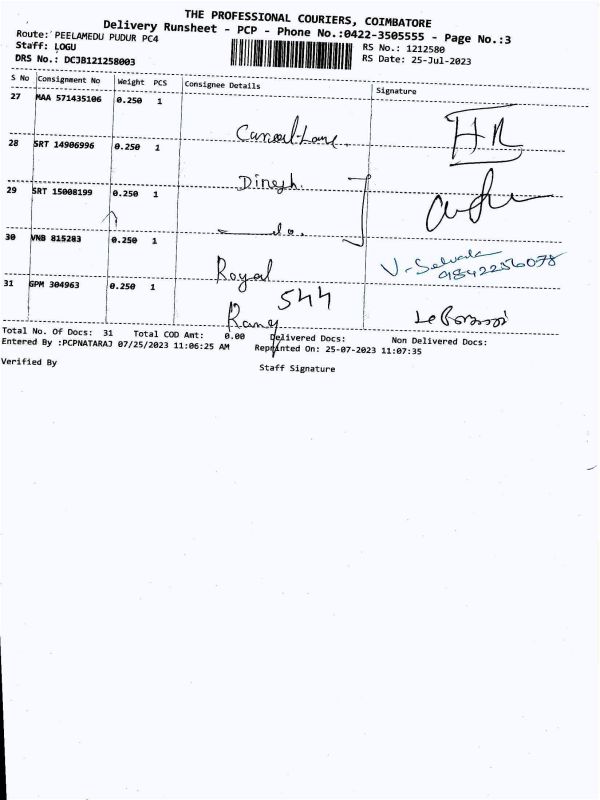 THE PROFESSIONAL COURIERS, COIMBATORE
Delivery Runsheet - PCP - Phone No.:0422-3505555 - Page No.:3
Route: PEELAMEDU PUDUR PC4
RS No.: 1212580
Staff: LOGU
RS Date: 25-Jul-2023
DRS No.: DCJB121258003
S No Consignment No Weight PCS Consignee Details Signature
27 MAA 571435106 0.250 1
HR
28 SRT 14906996 0.250 1
Dinesh
29 SRT 15008199 0.250 1
do.
30 VNB 815283 0.250 1
Royal
V. Selvala
9842256078
31 GPM 304963 0.250 1
544
Ramy
Total No. Of Docs: 31 Total COD Amt: 0.00 Delivered Docs: Non Delivered Docs:
Entered By :PCPNATARAJ 07/25/2023 11:06:25 AM Reprinted On: 25-07-2023 11:07:35
Verified By
Staff Signature